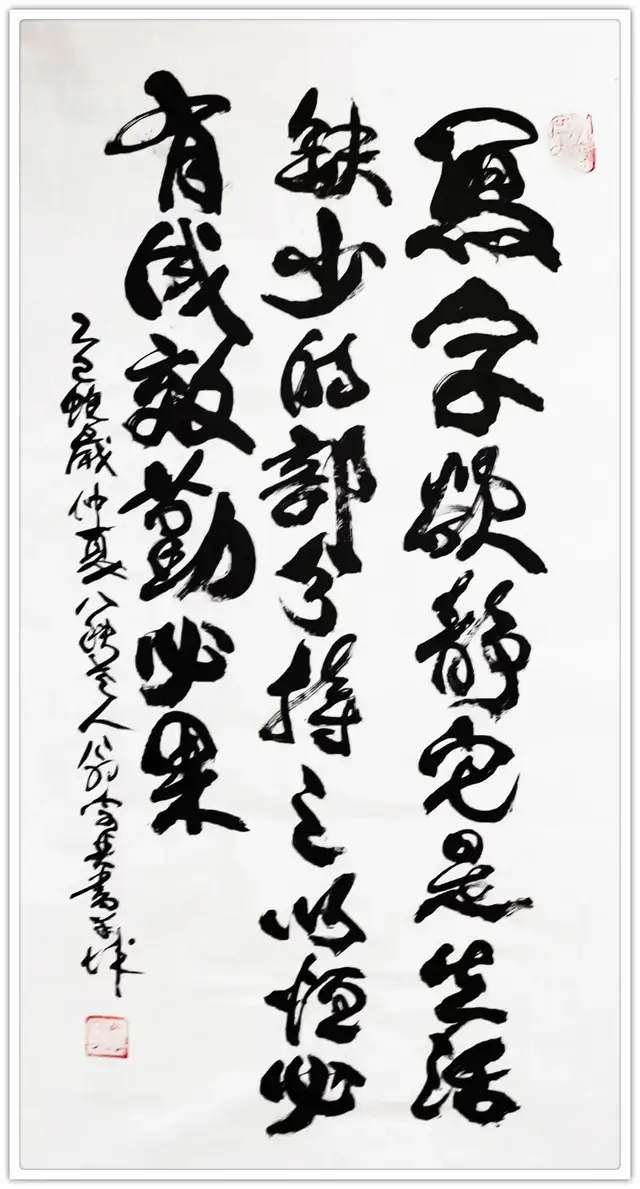 寫字欲静它是生活
缺少的部分持之以恒必
有成效勤必果
乙巳蛇歲仲夏八
人翁
書羊城